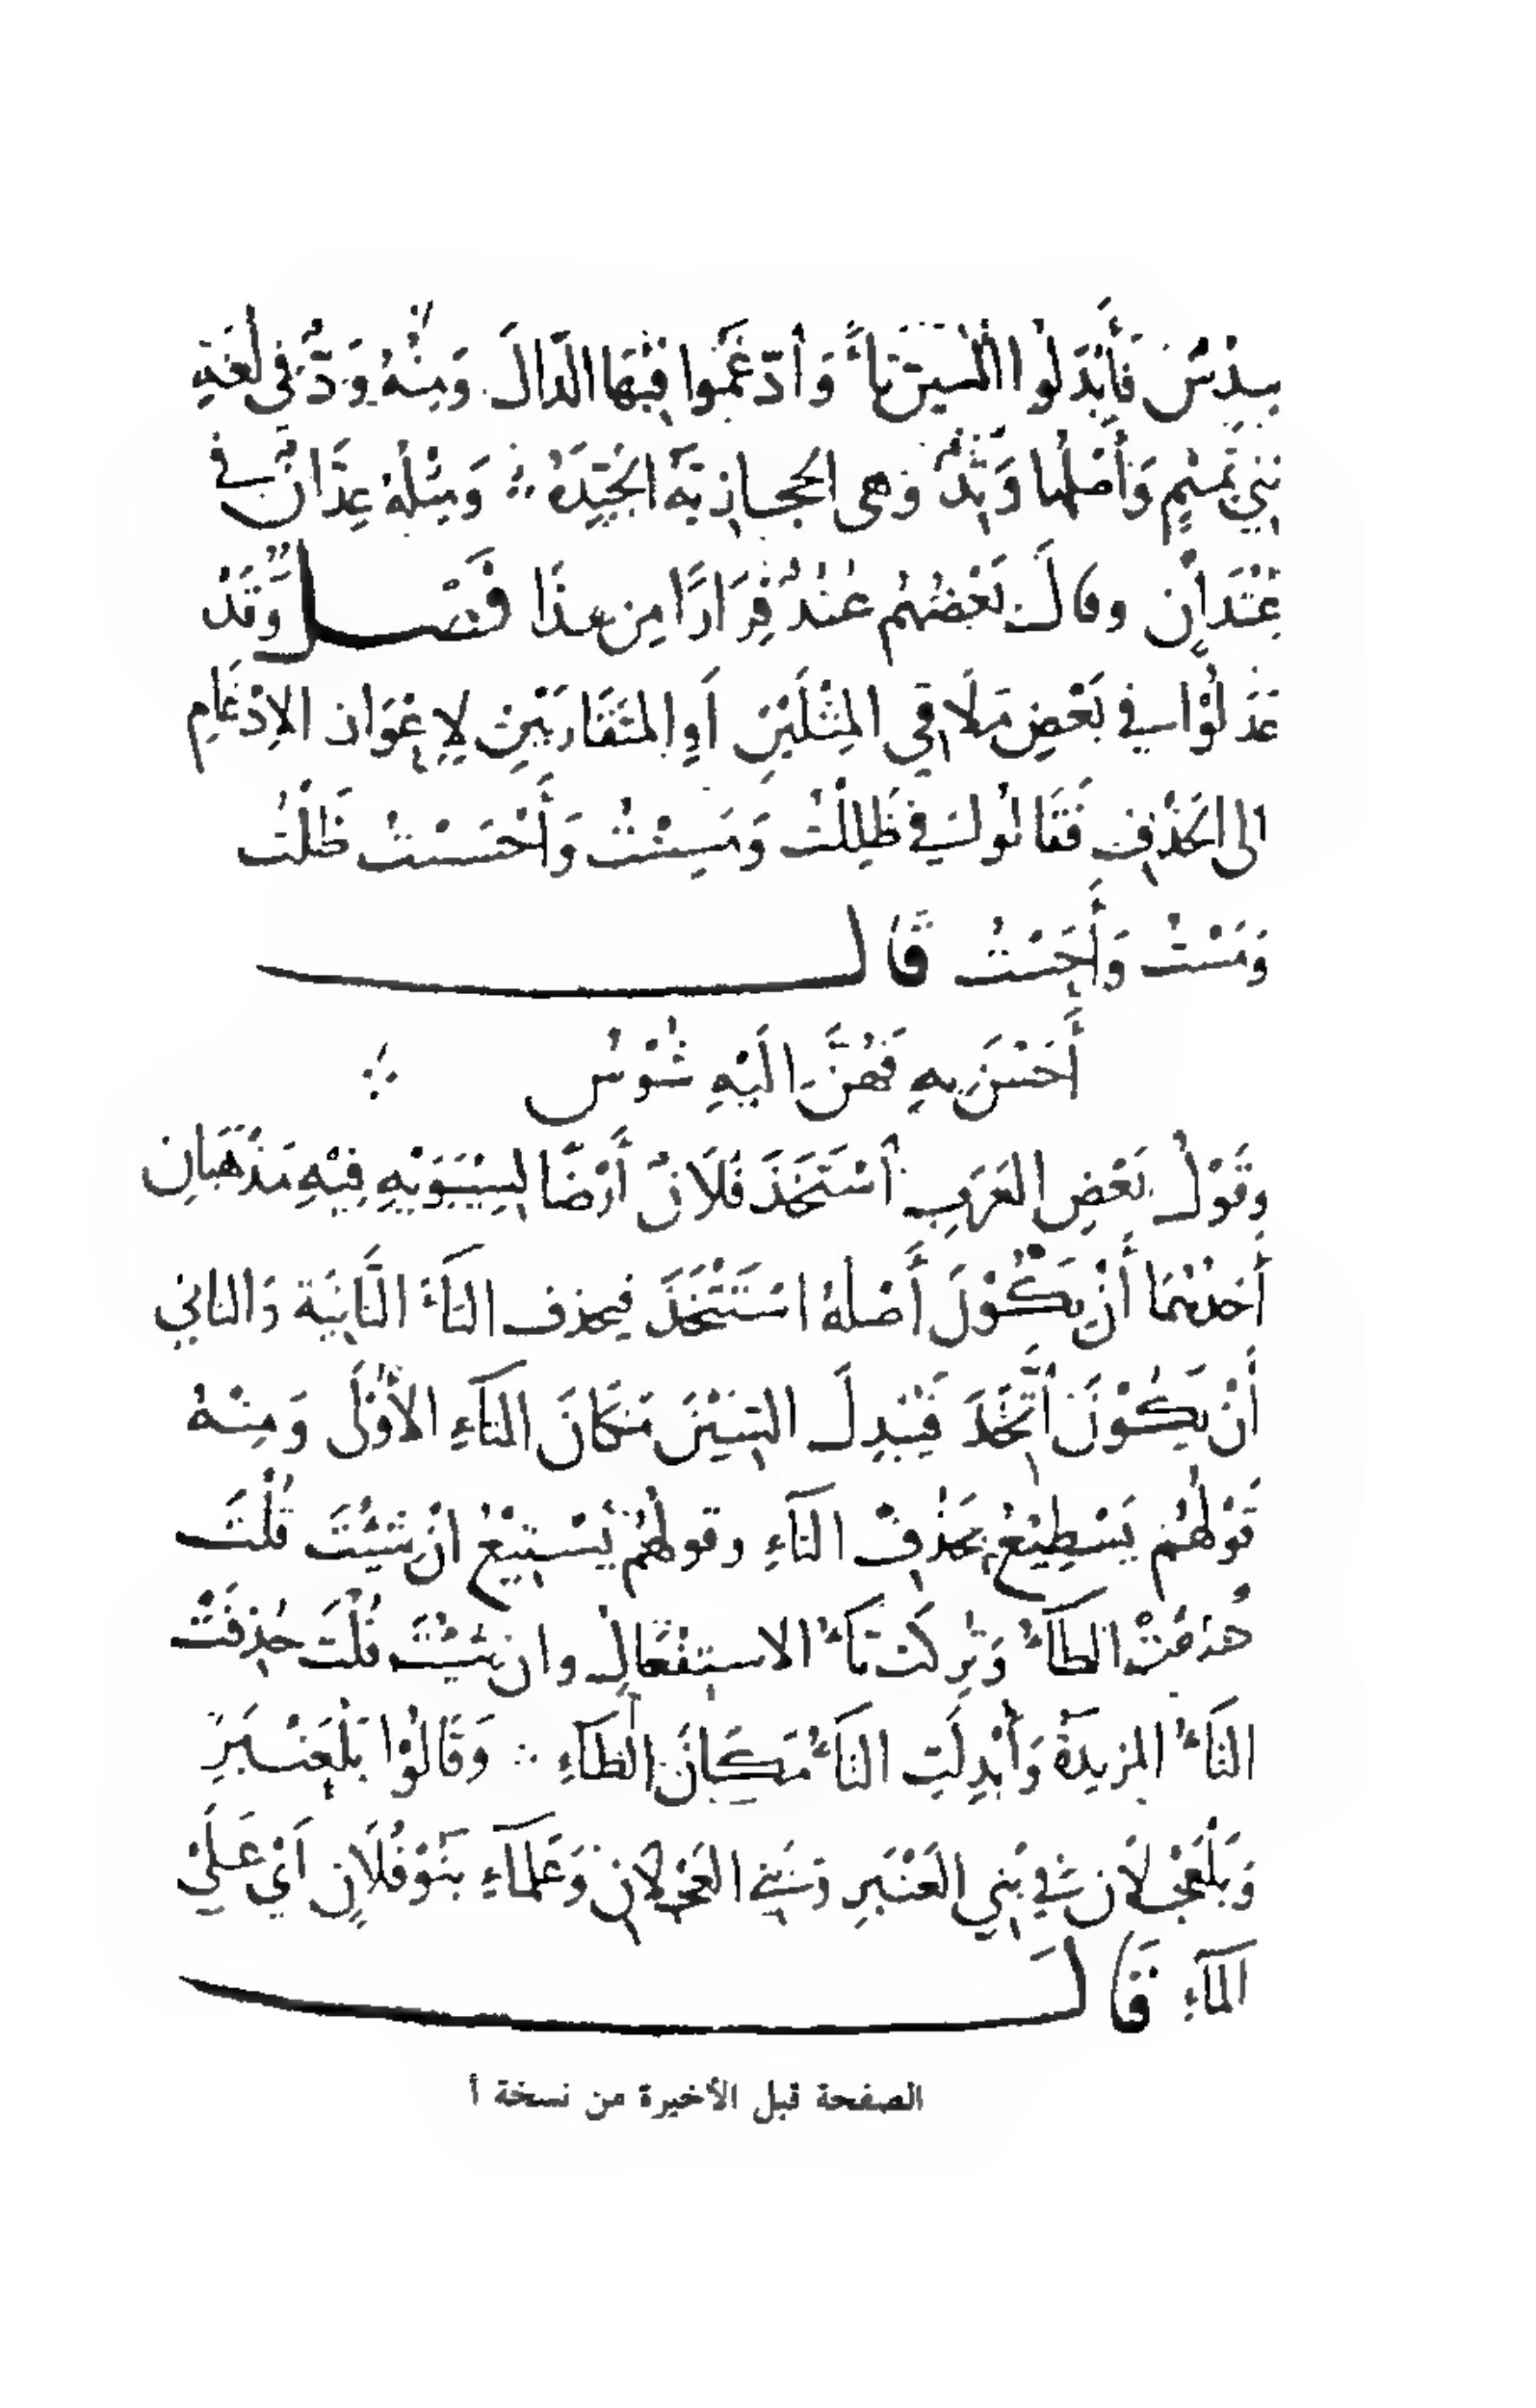 سِدْسٌ فَأَبْدَلُوا السِّينَ تَاءً وَأدّغَمُوا فِيْهَا الدَالَ وَمِنْهُ وَدٌّ في لُغَةِ
بَنِي تَمِيْمٍ وَأَصْلُهَا وَتِدٌ وَهى الحِجَازِيَّةُ الجَيِّدَةُ وَمِثْلُهُ عِدَّانٌ في
عِتْدَانٍ وقالَ بَعْضُهُم عُتُدٌ فِرَارًا مِن هذَا فَصْل وَقَدْ
عَدَلُوْا في بَعْضِ مَلَاقِي المِثْلَيْنِ أَوِ المتَقَارِبَيْنِ لِإِعْوَازِ الاِدْغَامِ
الى الحَذْفِ فَقَالُوا فِي ظَلِلْتُ وَمَسِسْتُ وَأَحْسَسْتُ ظَلْتُ
وَمَسْتُ وَأَحَسْتُ قَال
أَحَسْنَ بِهِ فَهُنَّ اِلَيْهِ شُوْسُ
وقَوْلُ بَعْضِ العَرَبِ اُسْتَخَذَ فُلَانٌ أَرْضًا لِسِيْبَوَيْهِ فِيْهِ مَذْهَبَانِ
أَحَدُهُمَا أَنْ يَكُوْنَ أَصْلُهُ اسْتَتْخَذَ فيحذف التَاءَ الثَّانِيَة وَالثاني
أَنْ يَكُوْنَ اتَّخَذَ فَيُبْدِلَ السِّيْنَ مَكَانَ التَاءِ الأُوْلَى وَمِنْهُ
قَوْلُهُمْ يَسْطِيْعُ بِحَذْفِ التَاءِ وقولُهُمْ يَسْتِيْعُ انْ شِئْتَ قُلْتَ
حُذِفَتْ الطَاءُ وَتُرِكَتْ تَاءُ الاستِفْعَالِ وان شِئْتَ قُلْتَ حُذِفَتْ
التَاءُ المزيدَةُ وَأُبْدِلَتِ التَاءُ مَكَانَ الطَاءِ وَقَالُوْا بَلْعَنْبَرِ
وَبَلْعَجْلَانِ فِي بَنِي العَنْبَرِ وَبَنِي العَجْلَانِ وَعَلْمَاءِ بَنُوْ فُلَانٍ أَيْ عَلَيْ
المَاءِ قَالَ
الصفحة قبل الأخيرة من نسخة أ